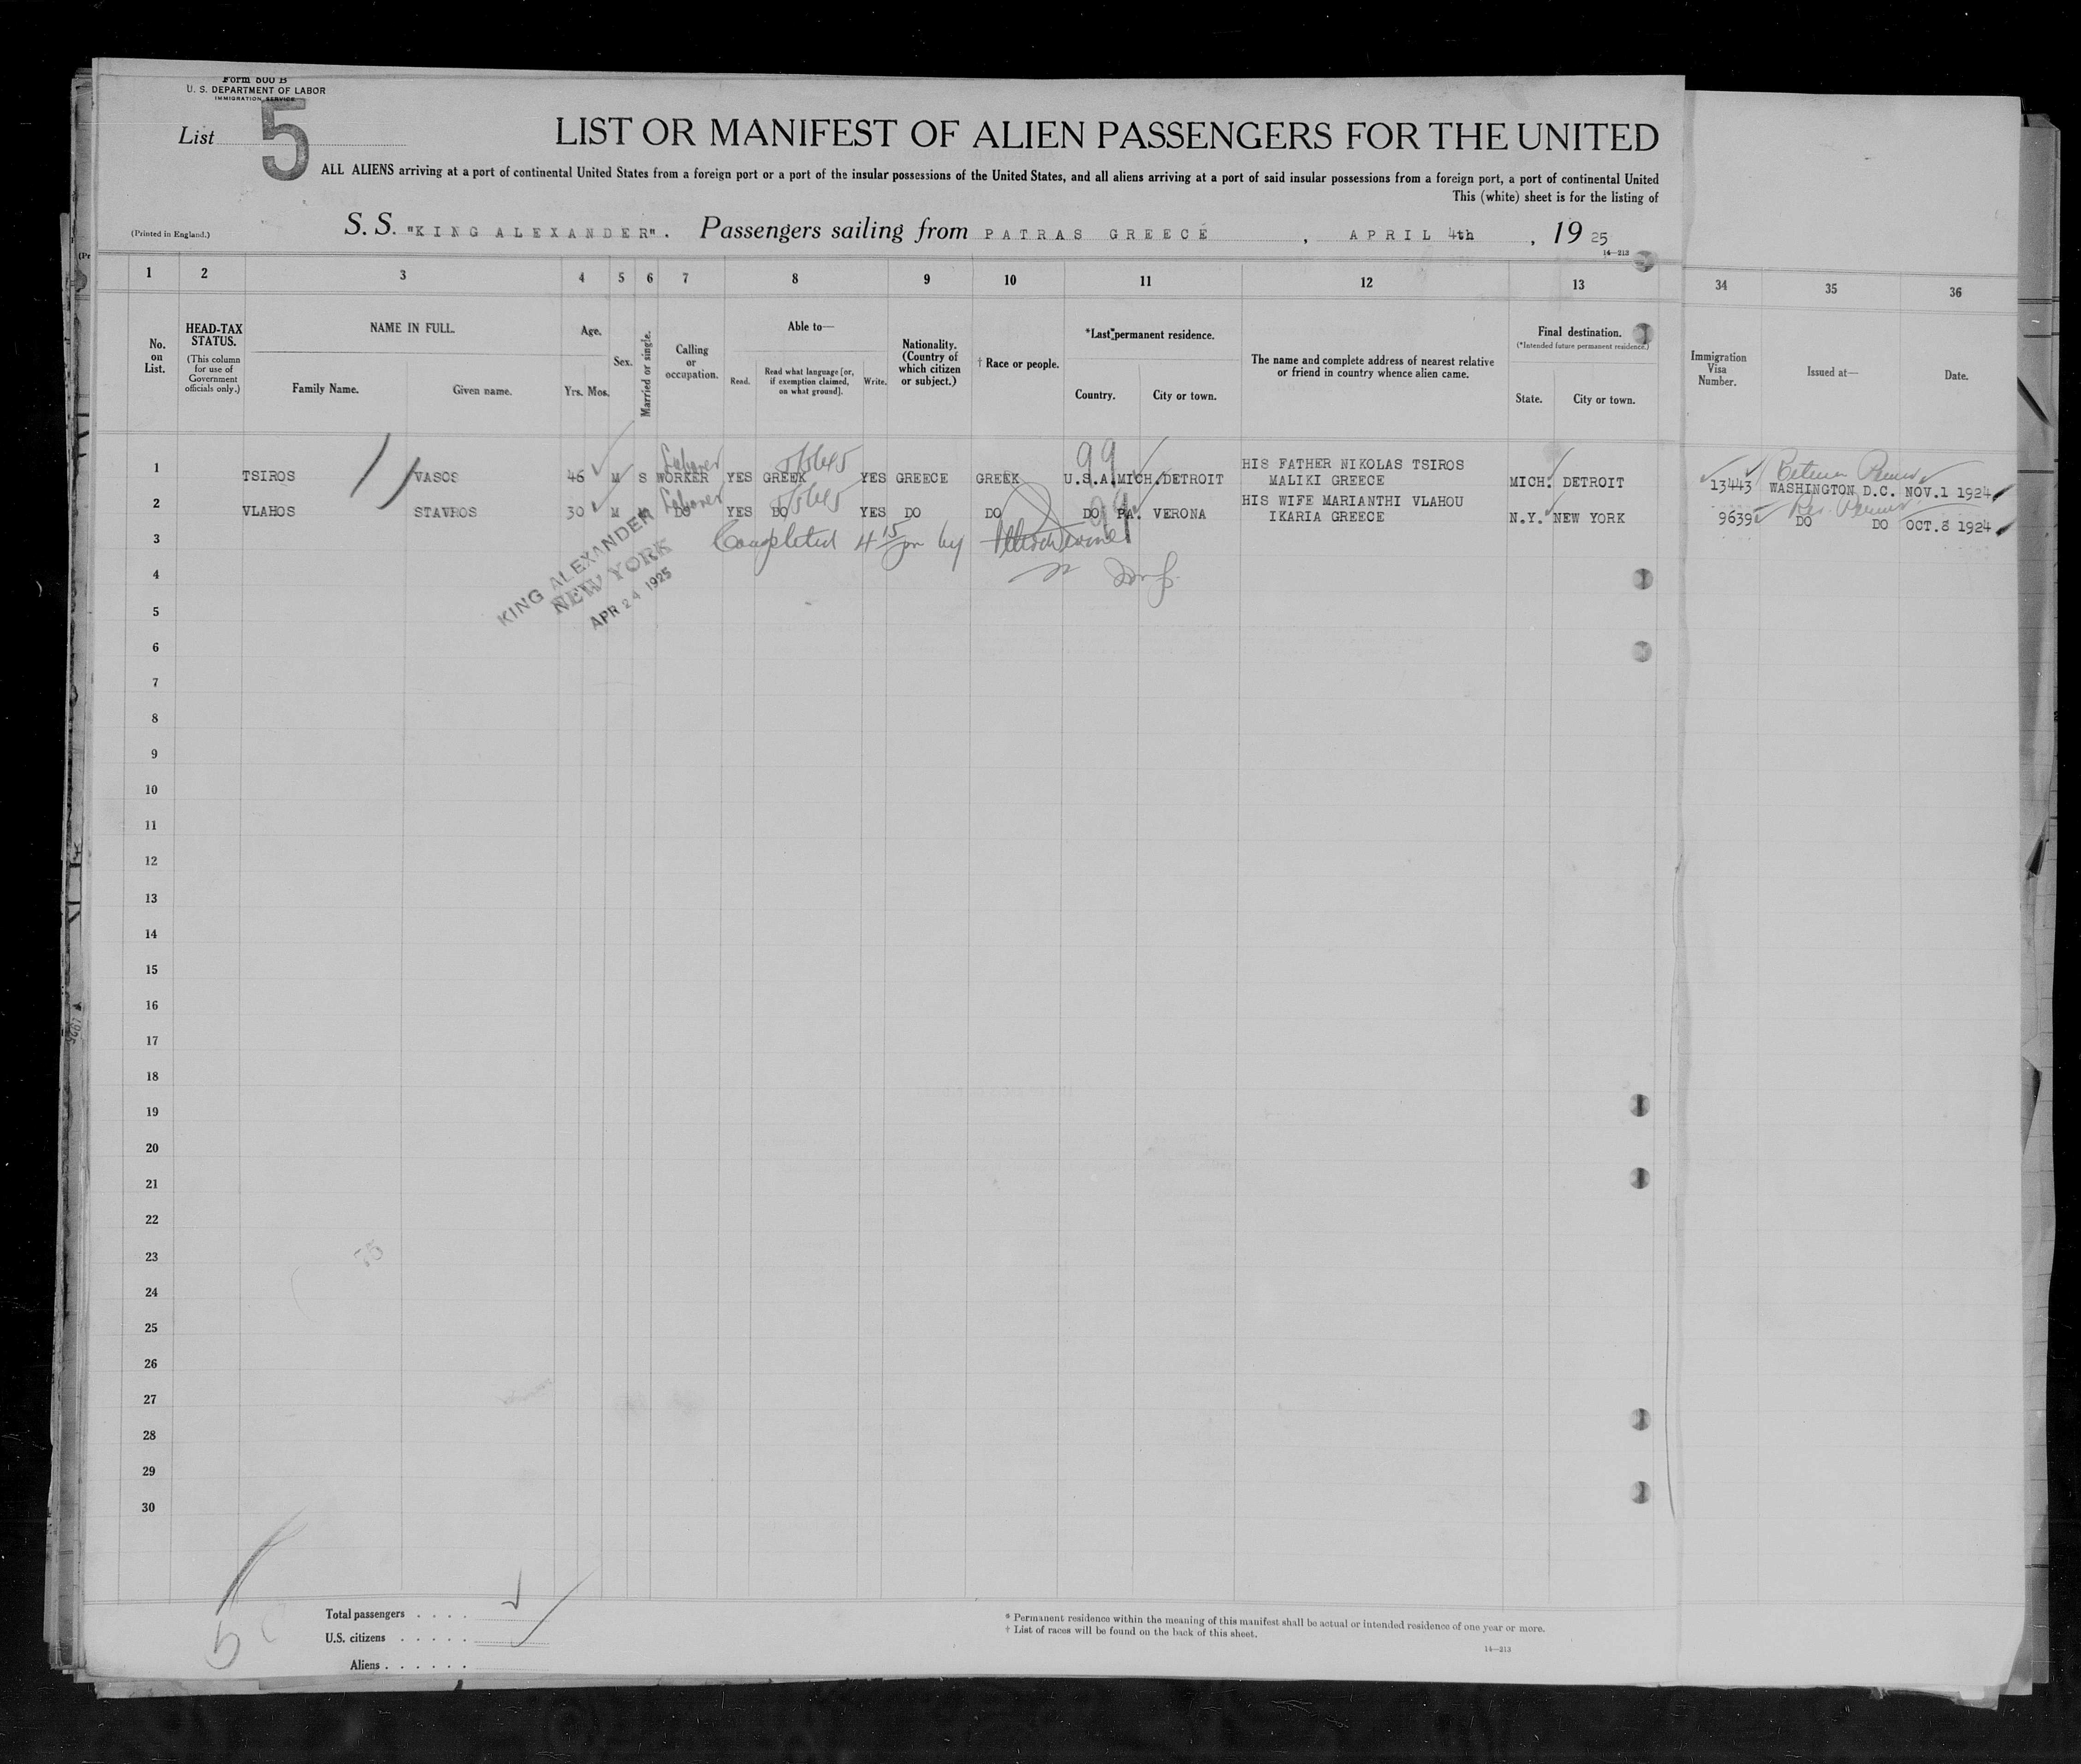 Form 500 B
U. S. DEPARTMENT OF LABOR
IMMIGRATION SERVICE
List 5
LIST OR MANIFEST OF ALIEN PASSENGERS FOR THE UNITED
ALL ALIENS arriving at a port of continental United States from a foreign port or a port of the insular possessions of the United States, and all aliens arriving at a port of said insular possessions from a foreign port, a port of continental United
This (white) sheet is for the listing of
(Printed in England.)
S. S. "KING ALEXANDER". Passengers sailing from PATRAS GREECE , APRIL 4th , 19 25
14—213
1 2 3 4 5 6 7 8 9 10 11 12 13 34 35 36
No. on List.
HEAD-TAX STATUS.
(This column for use of Government officials only.)
NAME IN FULL.
Family Name. Given name.
Age.
Yrs. Mos.
Sex.
Married or single.
Calling or occupation.
Able to—
Read. Read what language [or, if exemption claimed, on what ground]. Write.
Nationality. (Country of which citizen or subject.)
† Race or people.
*Last permanent residence.
Country. City or town.
The name and complete address of nearest relative or friend in country whence alien came.
Final destination.
(*Intended future permanent residence.)
State. City or town.
Immigration Visa Number.
Issued at—
Date.
99
Laborer
1 TSIROS VASOS 46 M S WORKER YES GREEK YES GREECE GREEK U.S.A. MICH. DETROIT HIS FATHER NIKOLAS TSIROS MALIKI GREECE MICH. DETROIT 13443 WASHINGTON D.C. NOV.1 1924
99
Laborer
2 VLAHOS STAVROS 30 M M DO YES DO YES DO DO DO PA. VERONA HIS WIFE MARIANTHI VLAHOU IKARIA GREECE N.Y. NEW YORK 9639 DO DO OCT.8 1924
3 Completed 4 15 pm by
KING ALEXANDER
NEW YORK
APR 24 1925
4
5
6
7
8
9
10
11
12
13
14
15
16
17
18
19
20
21
22
23
24
25
26
27
28
29
30
5
Total passengers . . . .
U.S. citizens . . . . .
Aliens . . . . . .
* Permanent residence within the meaning of this manifest shall be actual or intended residence of one year or more.
† List of races will be found on the back of this sheet.
14—213